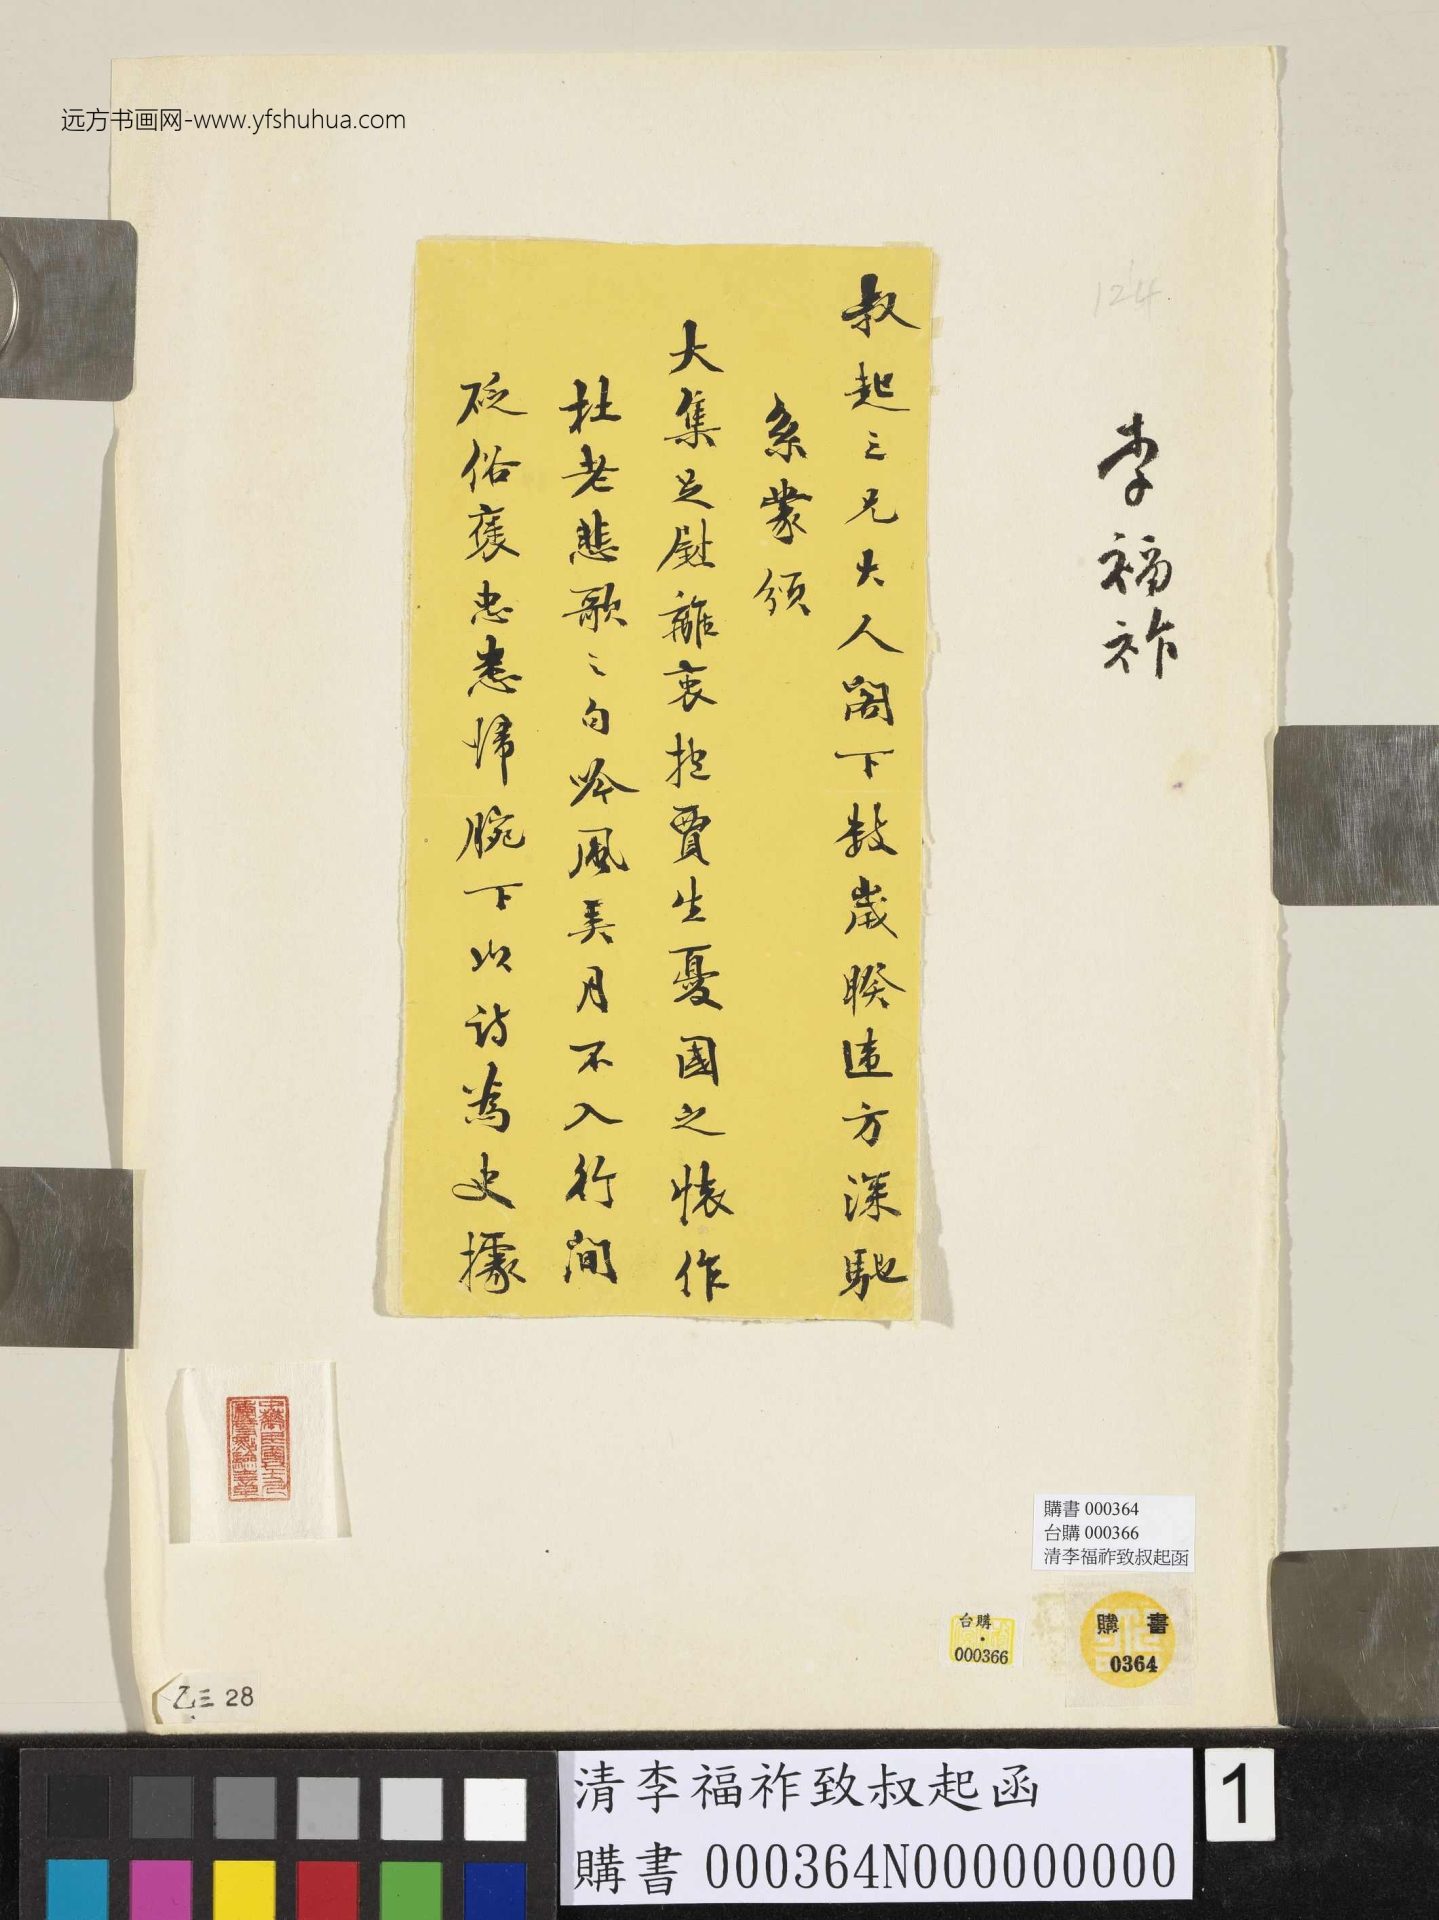 远方书画网-www.yfshuhua.com
124
李福祚
叔起三兄大人閣下數歲暌違方深馳
系蒙頒
大集足慰離衷抱賈生憂國之懷作
杜老悲歌之句吟風美月不入行間
砭俗褒忠悉歸腕下以詩為史據
購書 000364
台購 000366
清李福祚致叔起函
台購
000366
購書
0364
乙三 28
清李福祚致叔起函
購書 000364N000000000
1